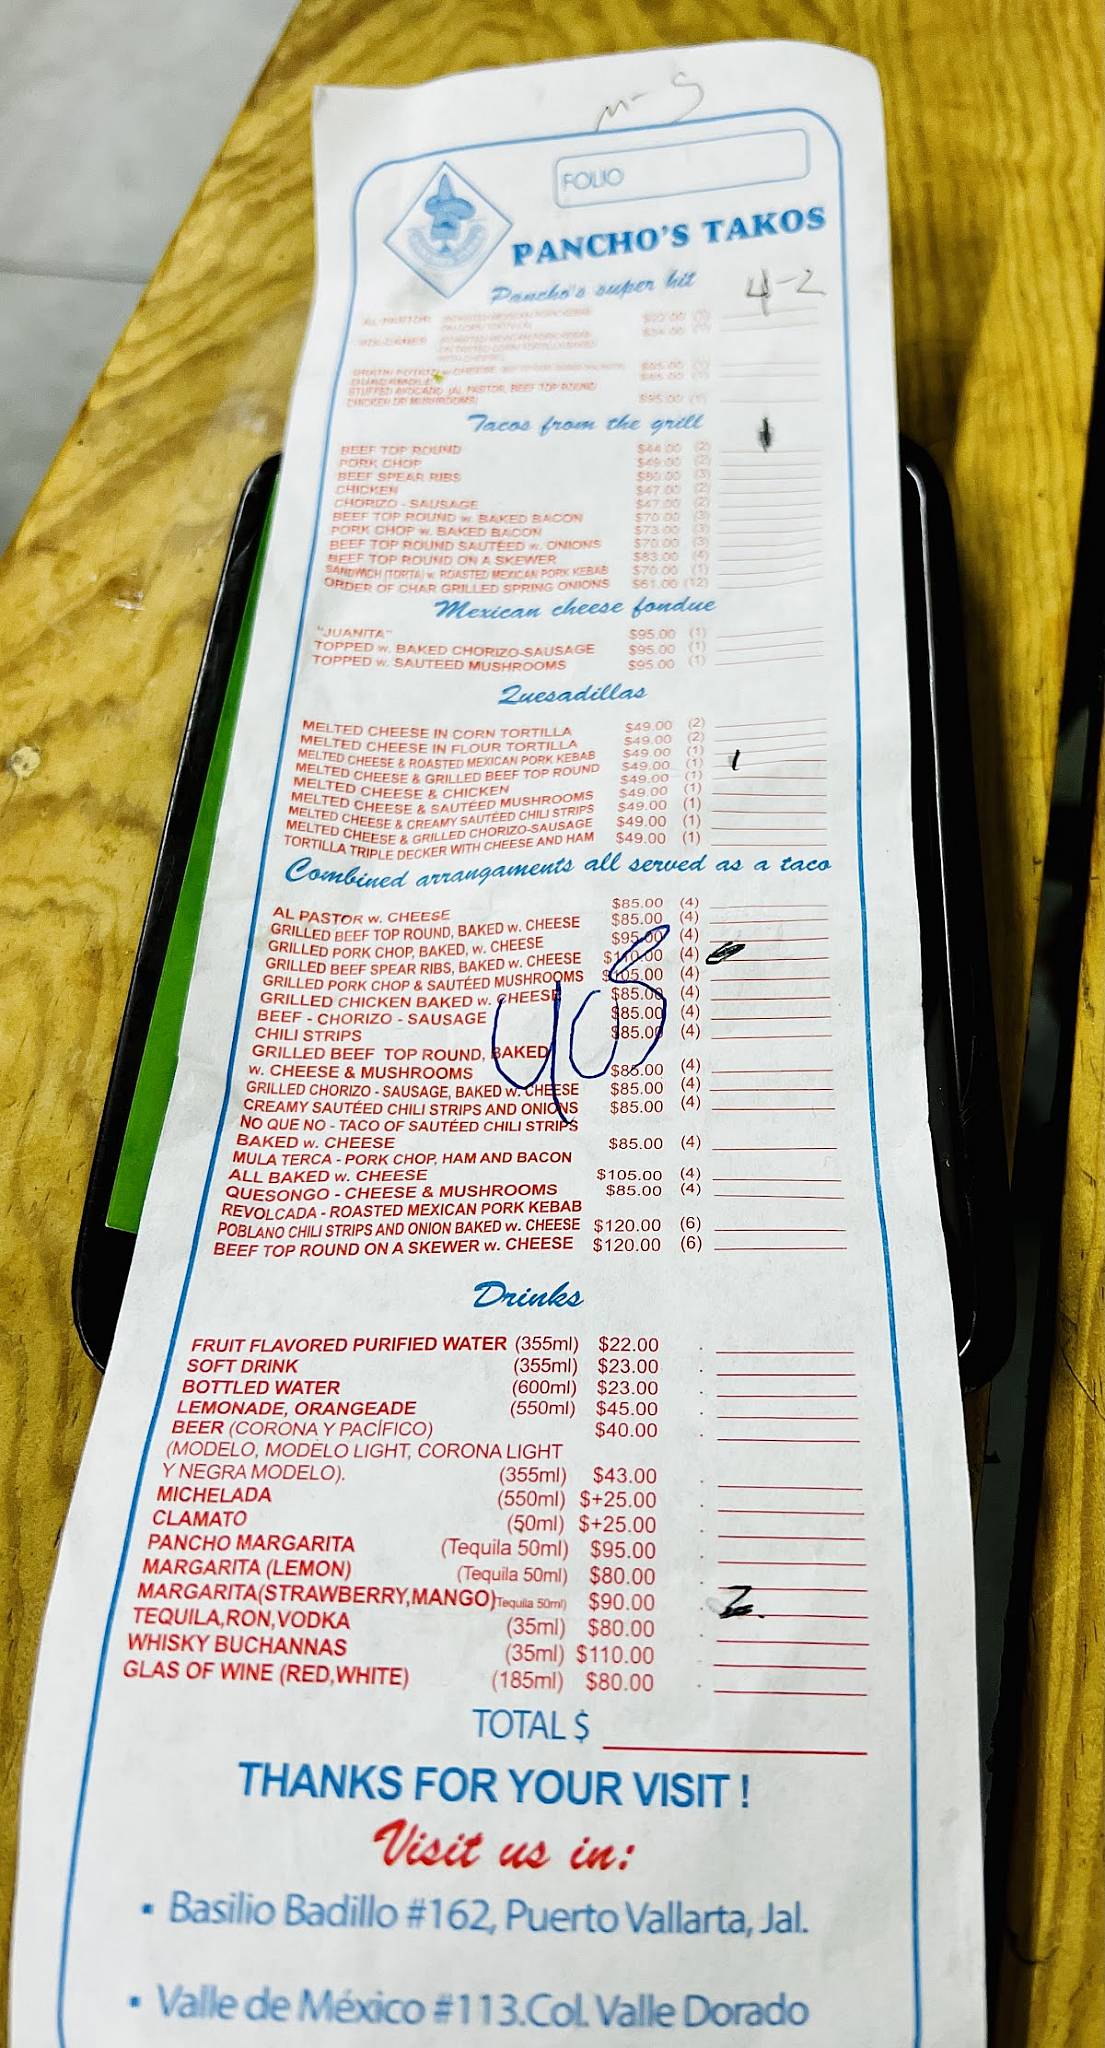 M-5
FOLIO
PANCHO'S TAKOS
Pancho's super hit
4-2
AL PASTOR $22.00 (1)
VOLCANES $34.00 (1)
$65.00 (1)
$65.00 (1)
STUFFED AVOCADO (AL PASTOR, BEEF TOP ROUND
CHICKEN OR MUSHROOMS) $95.00 (1)
Tacos from the grill
BEEF TOP ROUND $44.00 (2)
PORK CHOP $49.00 (2)
BEEF SPEAR RIBS $80.00 (3)
CHICKEN $47.00 (2)
CHORIZO - SAUSAGE $47.00 (2)
BEEF TOP ROUND w. BAKED BACON $70.00 (3)
PORK CHOP w. BAKED BACON $73.00 (3)
BEEF TOP ROUND SAUTÉED w. ONIONS $70.00 (3)
BEEF TOP ROUND ON A SKEWER $83.00 (4)
SANDWICH (TORTA) w. ROASTED MEXICAN PORK KEBAB $70.00 (1)
ORDER OF CHAR GRILLED SPRING ONIONS $61.00 (12)
Mexican cheese fondue
"JUANITA" $95.00 (1)
TOPPED w. BAKED CHORIZO-SAUSAGE $95.00 (1)
TOPPED w. SAUTEED MUSHROOMS $95.00 (1)
Quesadillas
MELTED CHEESE IN CORN TORTILLA $49.00 (2)
MELTED CHEESE IN FLOUR TORTILLA $49.00 (2)
MELTED CHEESE & ROASTED MEXICAN PORK KEBAB $49.00 (1) 1
MELTED CHEESE & GRILLED BEEF TOP ROUND $49.00 (1)
MELTED CHEESE & CHICKEN $49.00 (1)
MELTED CHEESE & SAUTÉED MUSHROOMS $49.00 (1)
MELTED CHEESE & CREAMY SAUTÉED CHILI STRIPS $49.00 (1)
MELTED CHEESE & GRILLED CHORIZO-SAUSAGE $49.00 (1)
TORTILLA TRIPLE DECKER WITH CHEESE AND HAM $49.00 (1)
Combined arrangaments all served as a taco
AL PASTOR w. CHEESE $85.00 (4)
GRILLED BEEF TOP ROUND, BAKED w. CHEESE $85.00 (4)
GRILLED PORK CHOP, BAKED, w. CHEESE $95.00 (4)
GRILLED BEEF SPEAR RIBS, BAKED w. CHEESE $110.00 (4)
GRILLED PORK CHOP & SAUTÉED MUSHROOMS $105.00 (4)
GRILLED CHICKEN BAKED w. CHEESE $85.00 (4)
BEEF - CHORIZO - SAUSAGE $85.00 (4)
CHILI STRIPS $85.00 (4)
GRILLED BEEF TOP ROUND, BAKED
w. CHEESE & MUSHROOMS $85.00 (4)
GRILLED CHORIZO - SAUSAGE, BAKED w. CHEESE $85.00 (4)
CREAMY SAUTÉED CHILI STRIPS AND ONIONS $85.00 (4)
NO QUE NO - TACO OF SAUTÉED CHILI STRIPS
BAKED w. CHEESE $85.00 (4)
MULA TERCA - PORK CHOP, HAM AND BACON
ALL BAKED w. CHEESE $105.00 (4)
QUESONGO - CHEESE & MUSHROOMS $85.00 (4)
REVOLCADA - ROASTED MEXICAN PORK KEBAB
POBLANO CHILI STRIPS AND ONION BAKED w. CHEESE $120.00 (6)
BEEF TOP ROUND ON A SKEWER w. CHEESE $120.00 (6)
Drinks
FRUIT FLAVORED PURIFIED WATER (355ml) $22.00
SOFT DRINK (355ml) $23.00
BOTTLED WATER (600ml) $23.00
LEMONADE, ORANGEADE (550ml) $45.00
BEER (CORONA Y PACÍFICO) $40.00
(MODELO, MODELO LIGHT, CORONA LIGHT
Y NEGRA MODELO). (355ml) $43.00
MICHELADA (550ml) $+25.00
CLAMATO (50ml) $+25.00
PANCHO MARGARITA (Tequila 50ml) $95.00
MARGARITA (LEMON) (Tequila 50ml) $80.00
MARGARITA(STRAWBERRY,MANGO)(Tequila 50ml) $90.00 2
TEQUILA,RON,VODKA (35ml) $80.00
WHISKY BUCHANNAS (35ml) $110.00
GLAS OF WINE (RED,WHITE) (185ml) $80.00
TOTAL $
THANKS FOR YOUR VISIT !
Visit us in:
▪ Basilio Badillo #162, Puerto Vallarta, Jal.
▪ Valle de México #113.Col. Valle Dorado